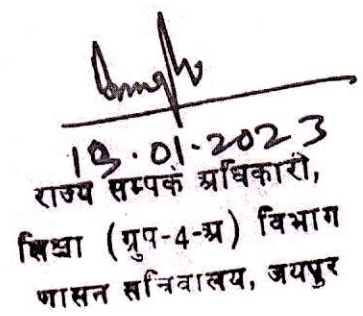 13.01.2023
राज्य सम्पर्क अधिकारी,
शिक्षा (ग्रुप-4-अ) विभाग
शासन सचिवालय, जयपुर